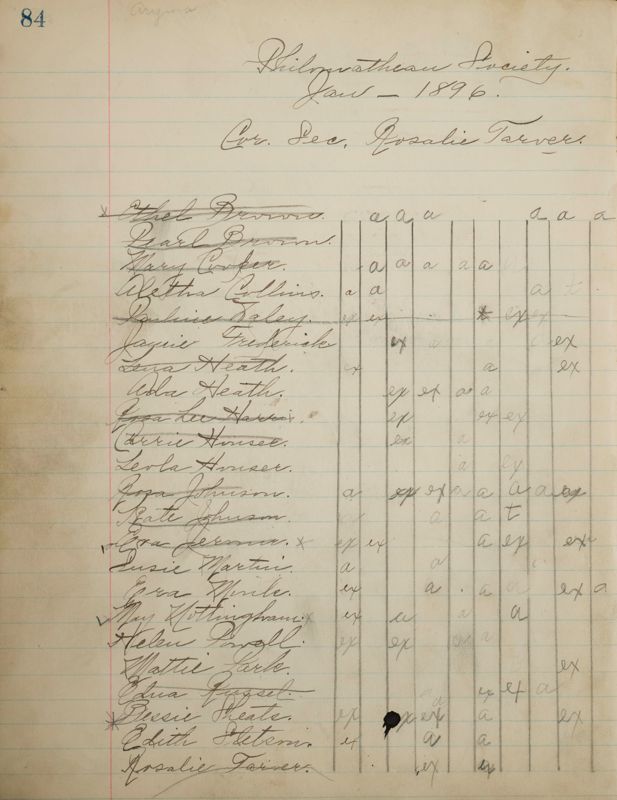 84
Philomathean Society.
Jan - 1896.
Cor. Sec. Rosalie Tarver.
x Ethel Brown. a a a a a a
Pearl Brown.
Mary Cooper. a a a a a
Aletha Collins. a a a t
Pauline Daley. ex ex ex ex
Janie Frederick ex a ex
Lena Heath. ex a ex
Ada Heath. ex ex a a
Lee Harris. ex ex ex
Carrie Houser. ex a
Leola Houser. a ex
Rosa Johnson. a ex ex a a a a ex
Kate Johnson. a a t
Eva Jerome. x ex ex a ex ex
Susie Martin. a a
Eva Monk. ex a a a ex a
May Nottingham. x ex a a a
Helen Powell. ex ex a
Mattie Park. ex
Edna Russel. a ex ex a
Bessie Sheats. ex ex ex a ex
Edith Stetson. ex a a
Rosalie Tarver. ex ex